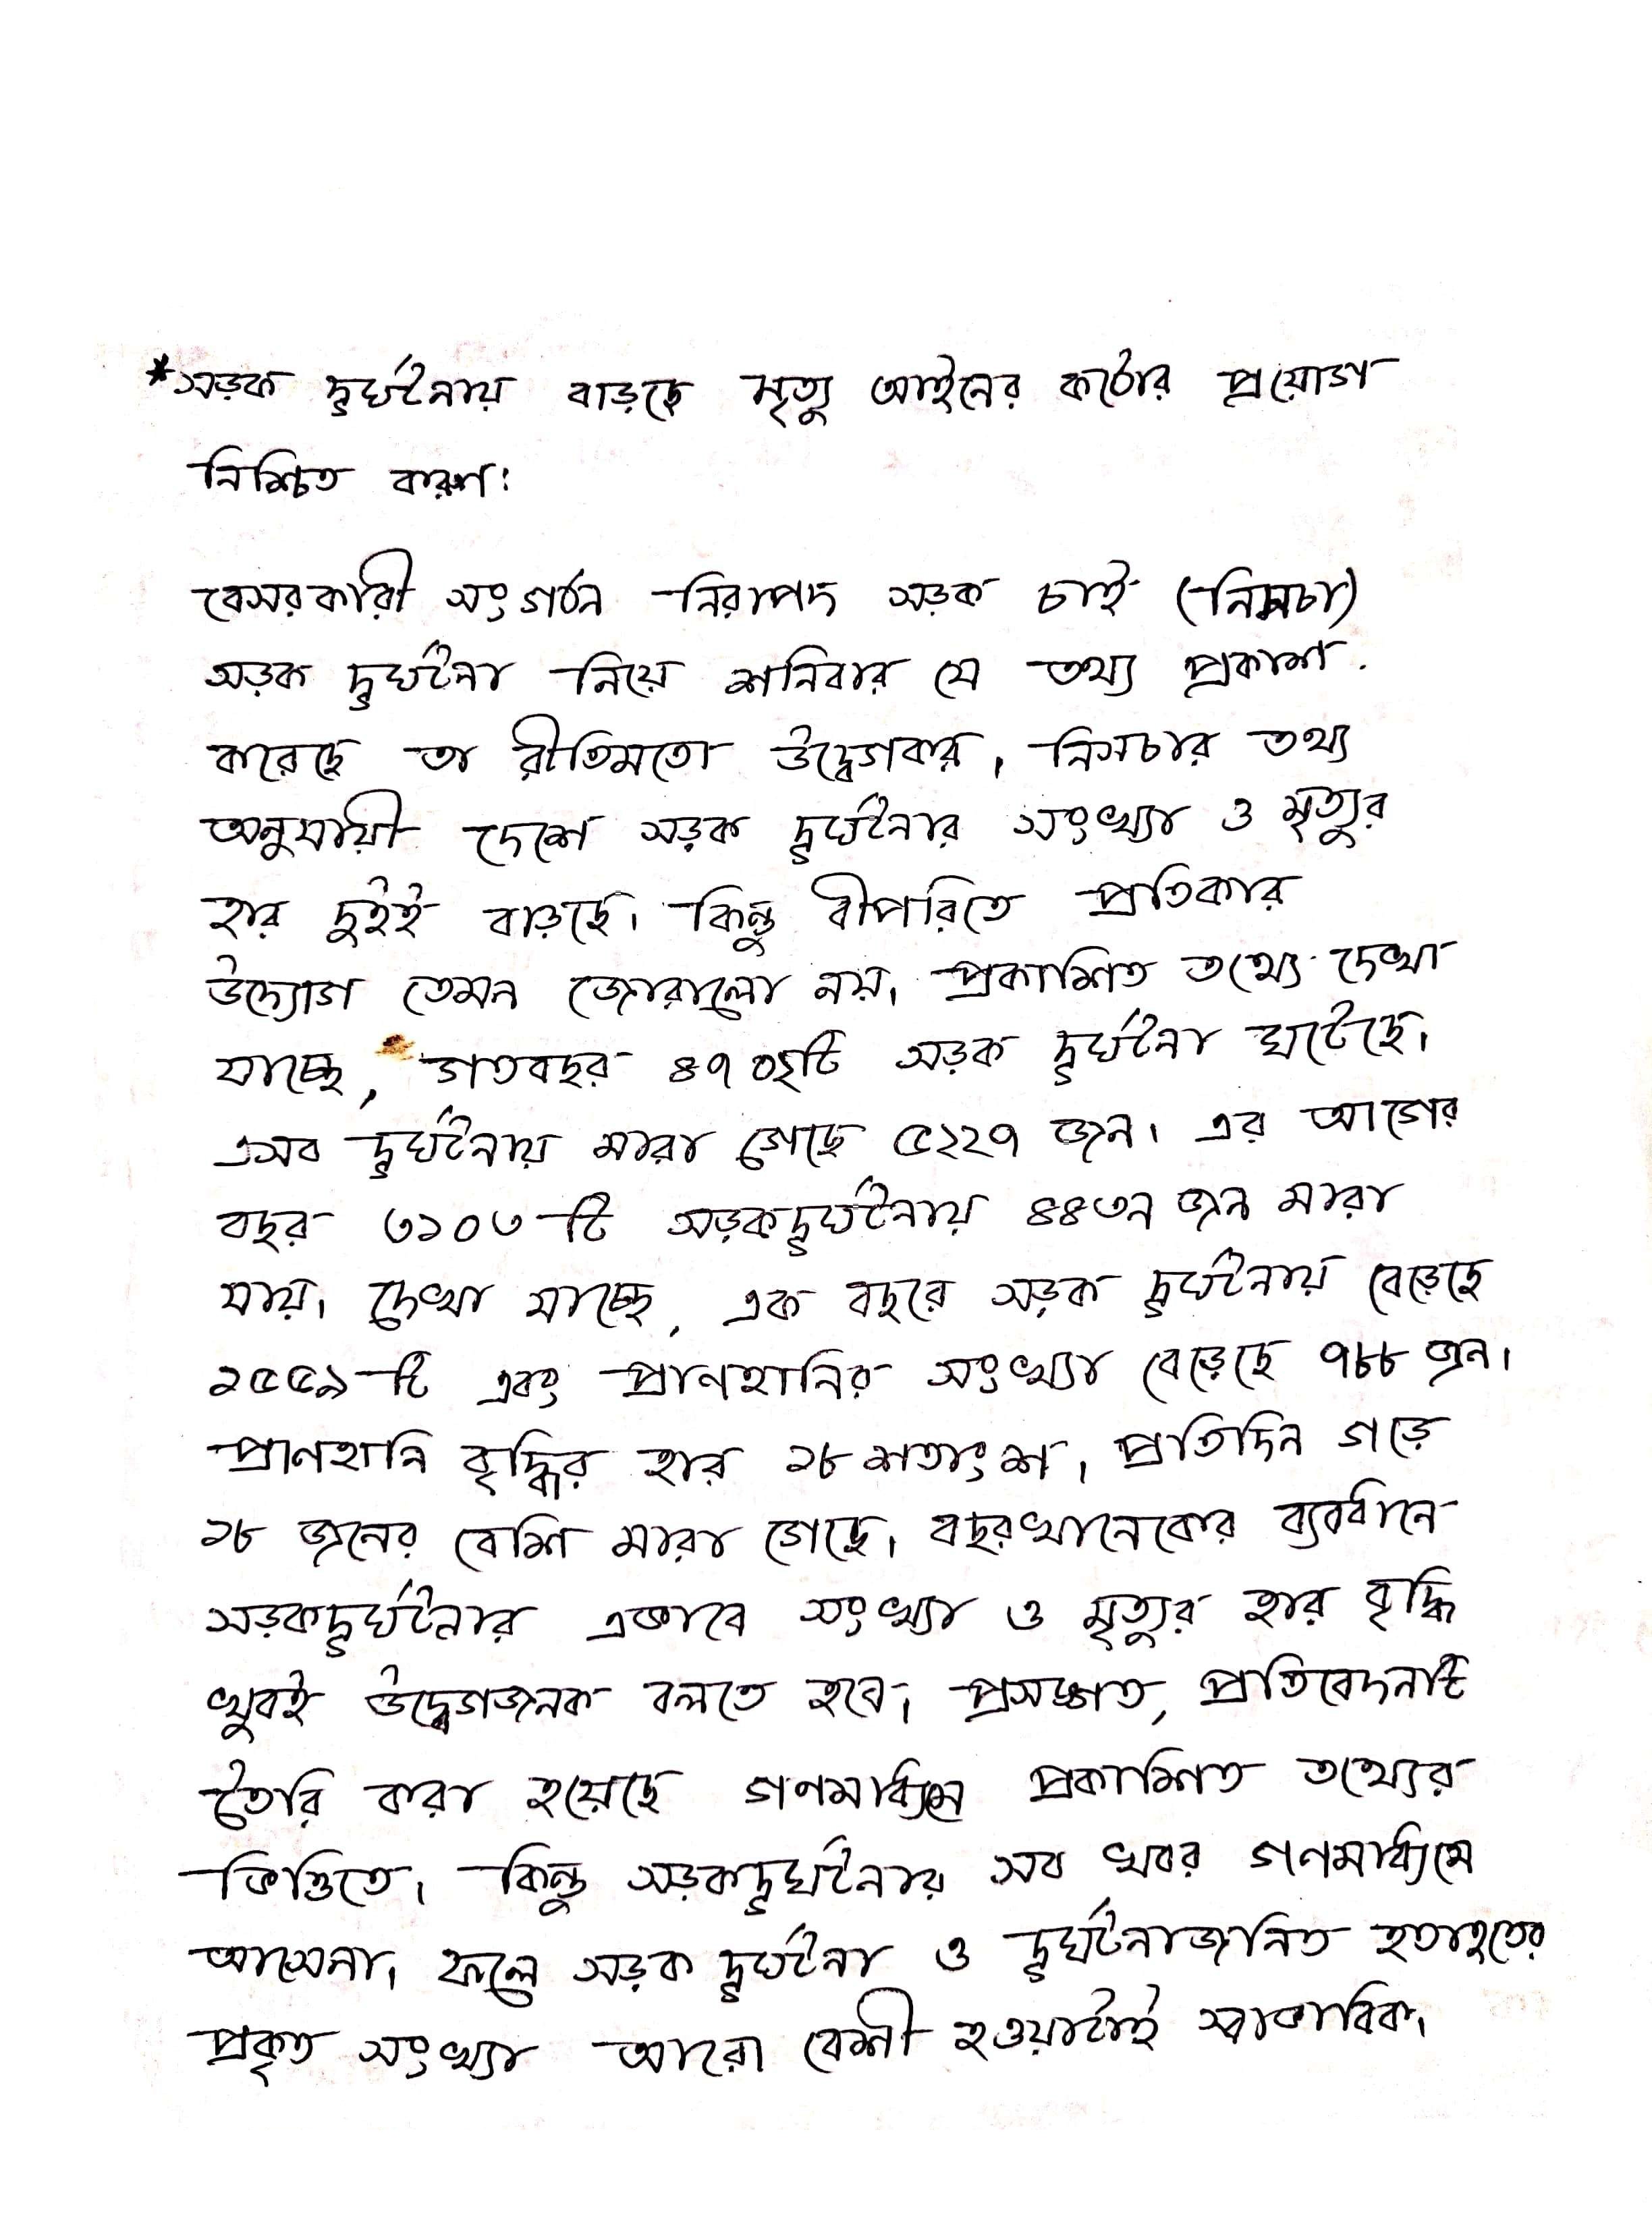 *সড়ক দুর্ঘটনায় বাড়ছে মৃত্যু আইনের কঠোর প্রয়োগ
নিশ্চিত করুণ:
বেসরকারী সংগঠন নিরাপদ সড়ক চাই (নিসচা)
সড়ক দুর্ঘটনা নিয়ে শনিবার যে তথ্য প্রকাশ
করেছে তা রীতিমতো উদ্বেগকর। নিসচার তথ্য
অনুযায়ী দেশে সড়ক দুর্ঘটনার সংখ্যা ও মৃত্যুর
হার দুইই বাড়ছে। কিন্তু বীপরিতে প্রতিকার
উদ্যোগ তেমন জোরালো নয়। প্রকাশিত তথ্যে দেখা
যাচ্ছে, গতবছর ৪৭০২টি সড়ক দুর্ঘটনা ঘটেছে।
এসব দুর্ঘটনায় মারা গেছে ৫২২৭ জন। এর আগের
বছর ৩১০৩-টি সড়কদুর্ঘটনায় ৪৪৩৯ জন মারা
যায়। দেখা যাচ্ছে, এক বছরে সড়ক দুর্ঘটনায় বেড়েছে
১৫৫৯-টি এবং প্রাণহানির সংখ্যা বেড়েছে ৭৮৮ জন।
প্রাণহানি বৃদ্ধির হার ১৮ শতাংশ। প্রতিদিন গড়ে
১৮ জনের বেশি মারা গেছে। বছরখানেকের ব্যবধানে
সড়কদুর্ঘটনার এভাবে সংখ্যা ও মৃত্যুর হার বৃদ্ধি
খুবই উদ্বেগজনক বলতে হবে। প্রসঙ্গত, প্রতিবেদনটি
তৈরি করা হয়েছে গণমাধ্যমে প্রকাশিত তথ্যের
ভিত্তিতে। কিন্তু সড়কদুর্ঘটনার সব খবর গণমাধ্যমে
আসেনা। ফলে সড়ক দুর্ঘটনা ও দুর্ঘটনাজনিত হতাহতের
প্রকৃত সংখ্যা আরো বেশী হওয়াটাই স্বাভাবিক।